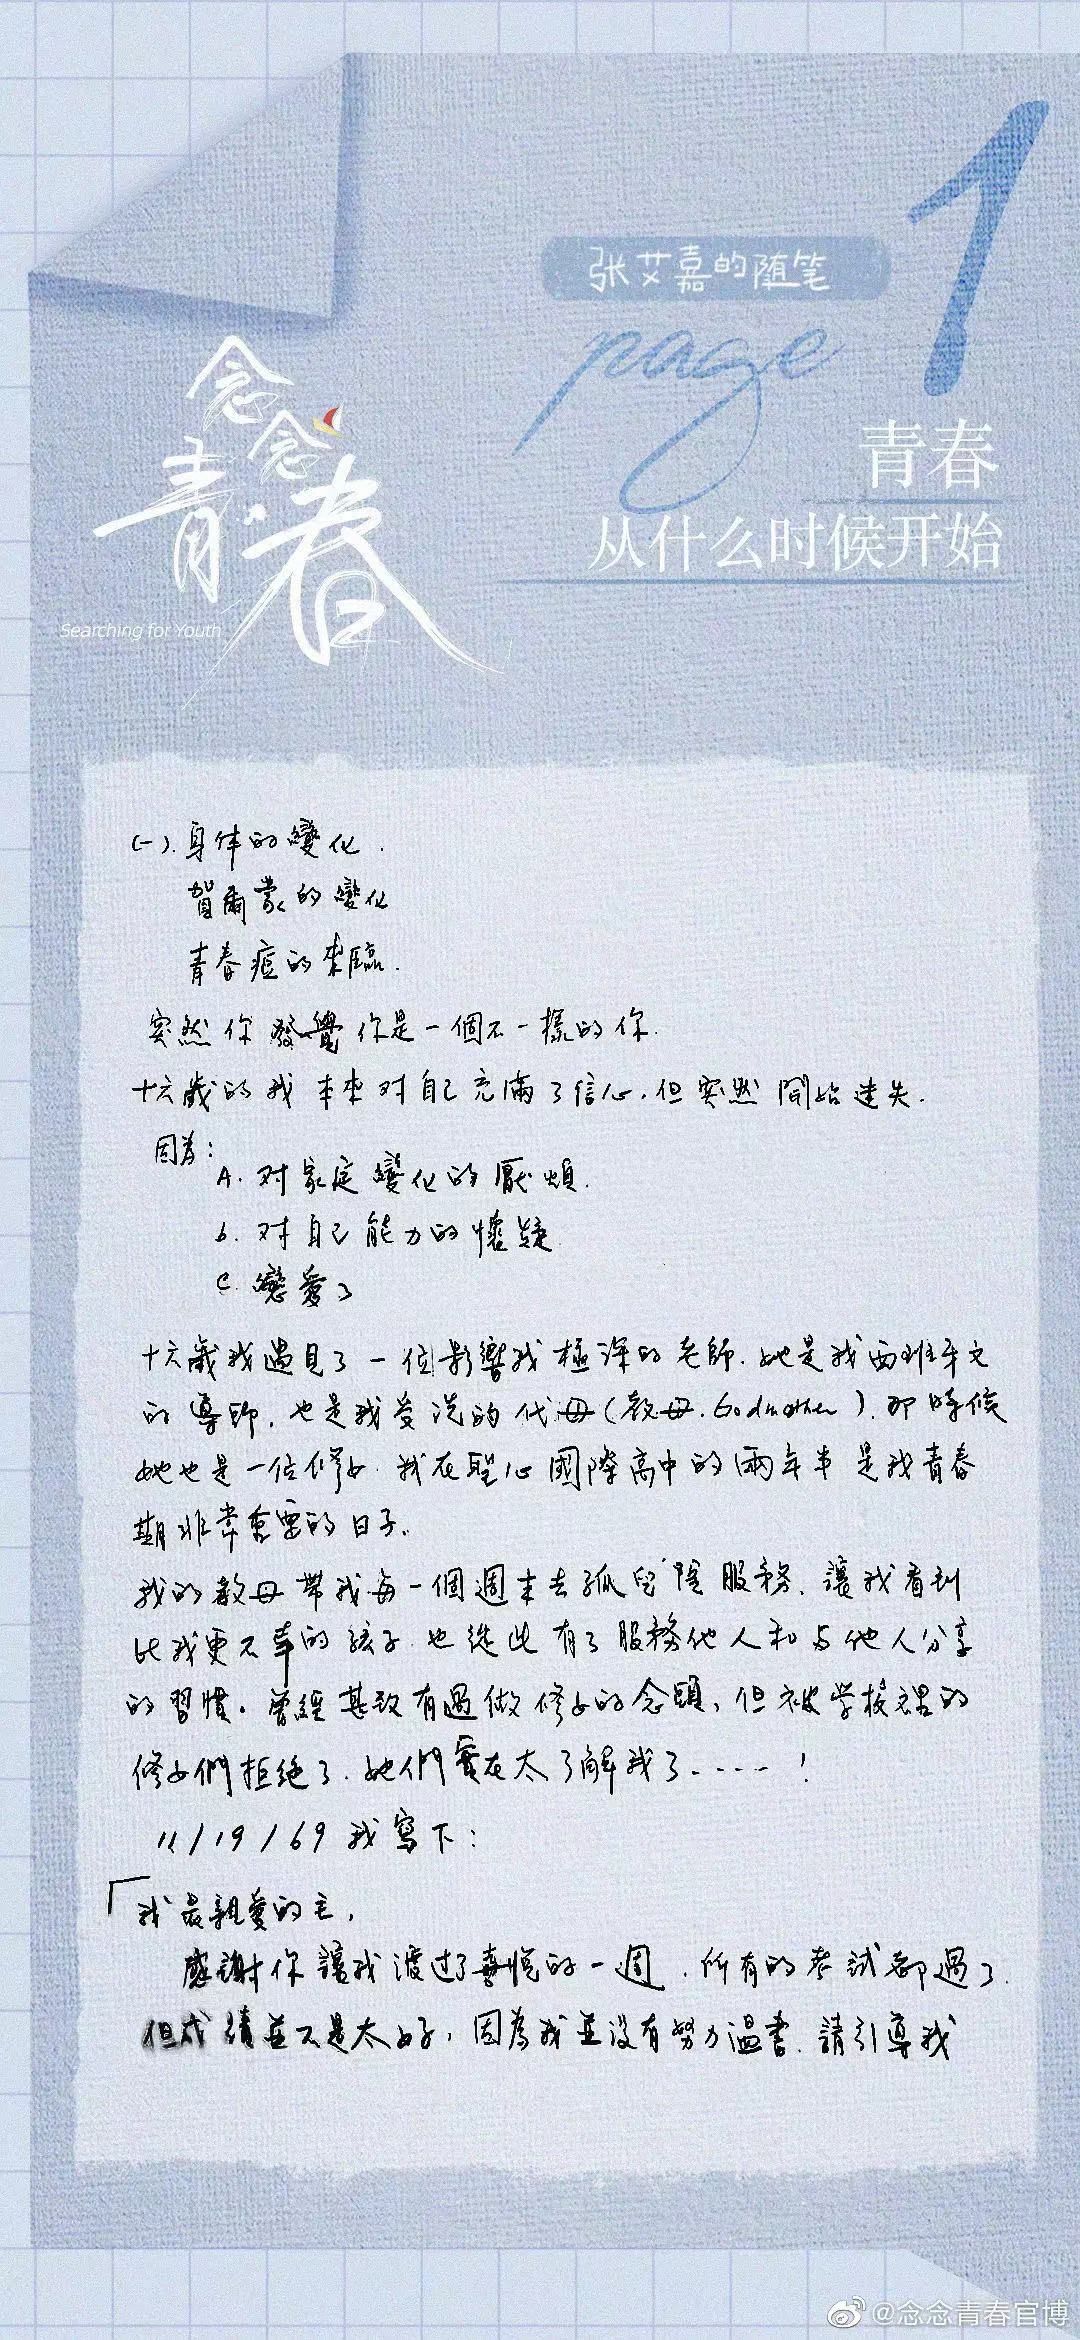 张艾嘉的随笔
page 1
念念青春
Searching for Youth
青春
从什么时候开始
(一).身体的變化.
賀爾蒙的變化
青春痘的來臨.
突然你發覺你是一個不一樣的你.
十六歲的我本來对自己充滿了信心,但突然開始迷失.
因為:
A.对家庭變化的厭煩.
b.对自己能力的懷疑
C.戀愛了
十六歲我遇見了一位影響我極深的老師.她是我西班牙文
的導師,也是我受洗的代母(教母.Godmother).那時候
她也是一位修女.我在聖心國際高中的兩年半是我青春
期非常重要的日子.
我的教母帶我每一個週末去孤兒院服務.讓我看到
比我更不幸的孩子.也從此有了服務他人和与他人分享
的習慣。曾經甚致有過做修女的念頭,但被学校裡的
修女們拒绝了.她們實在太了解我了.....!
11/19/69我寫下:
「我最親愛的主,
感謝你讓我渡过了喜悅的一週.所有的考試都過了.
但成績並不是太好,因為我並没有努力温書.請引導我
@念念青春官博